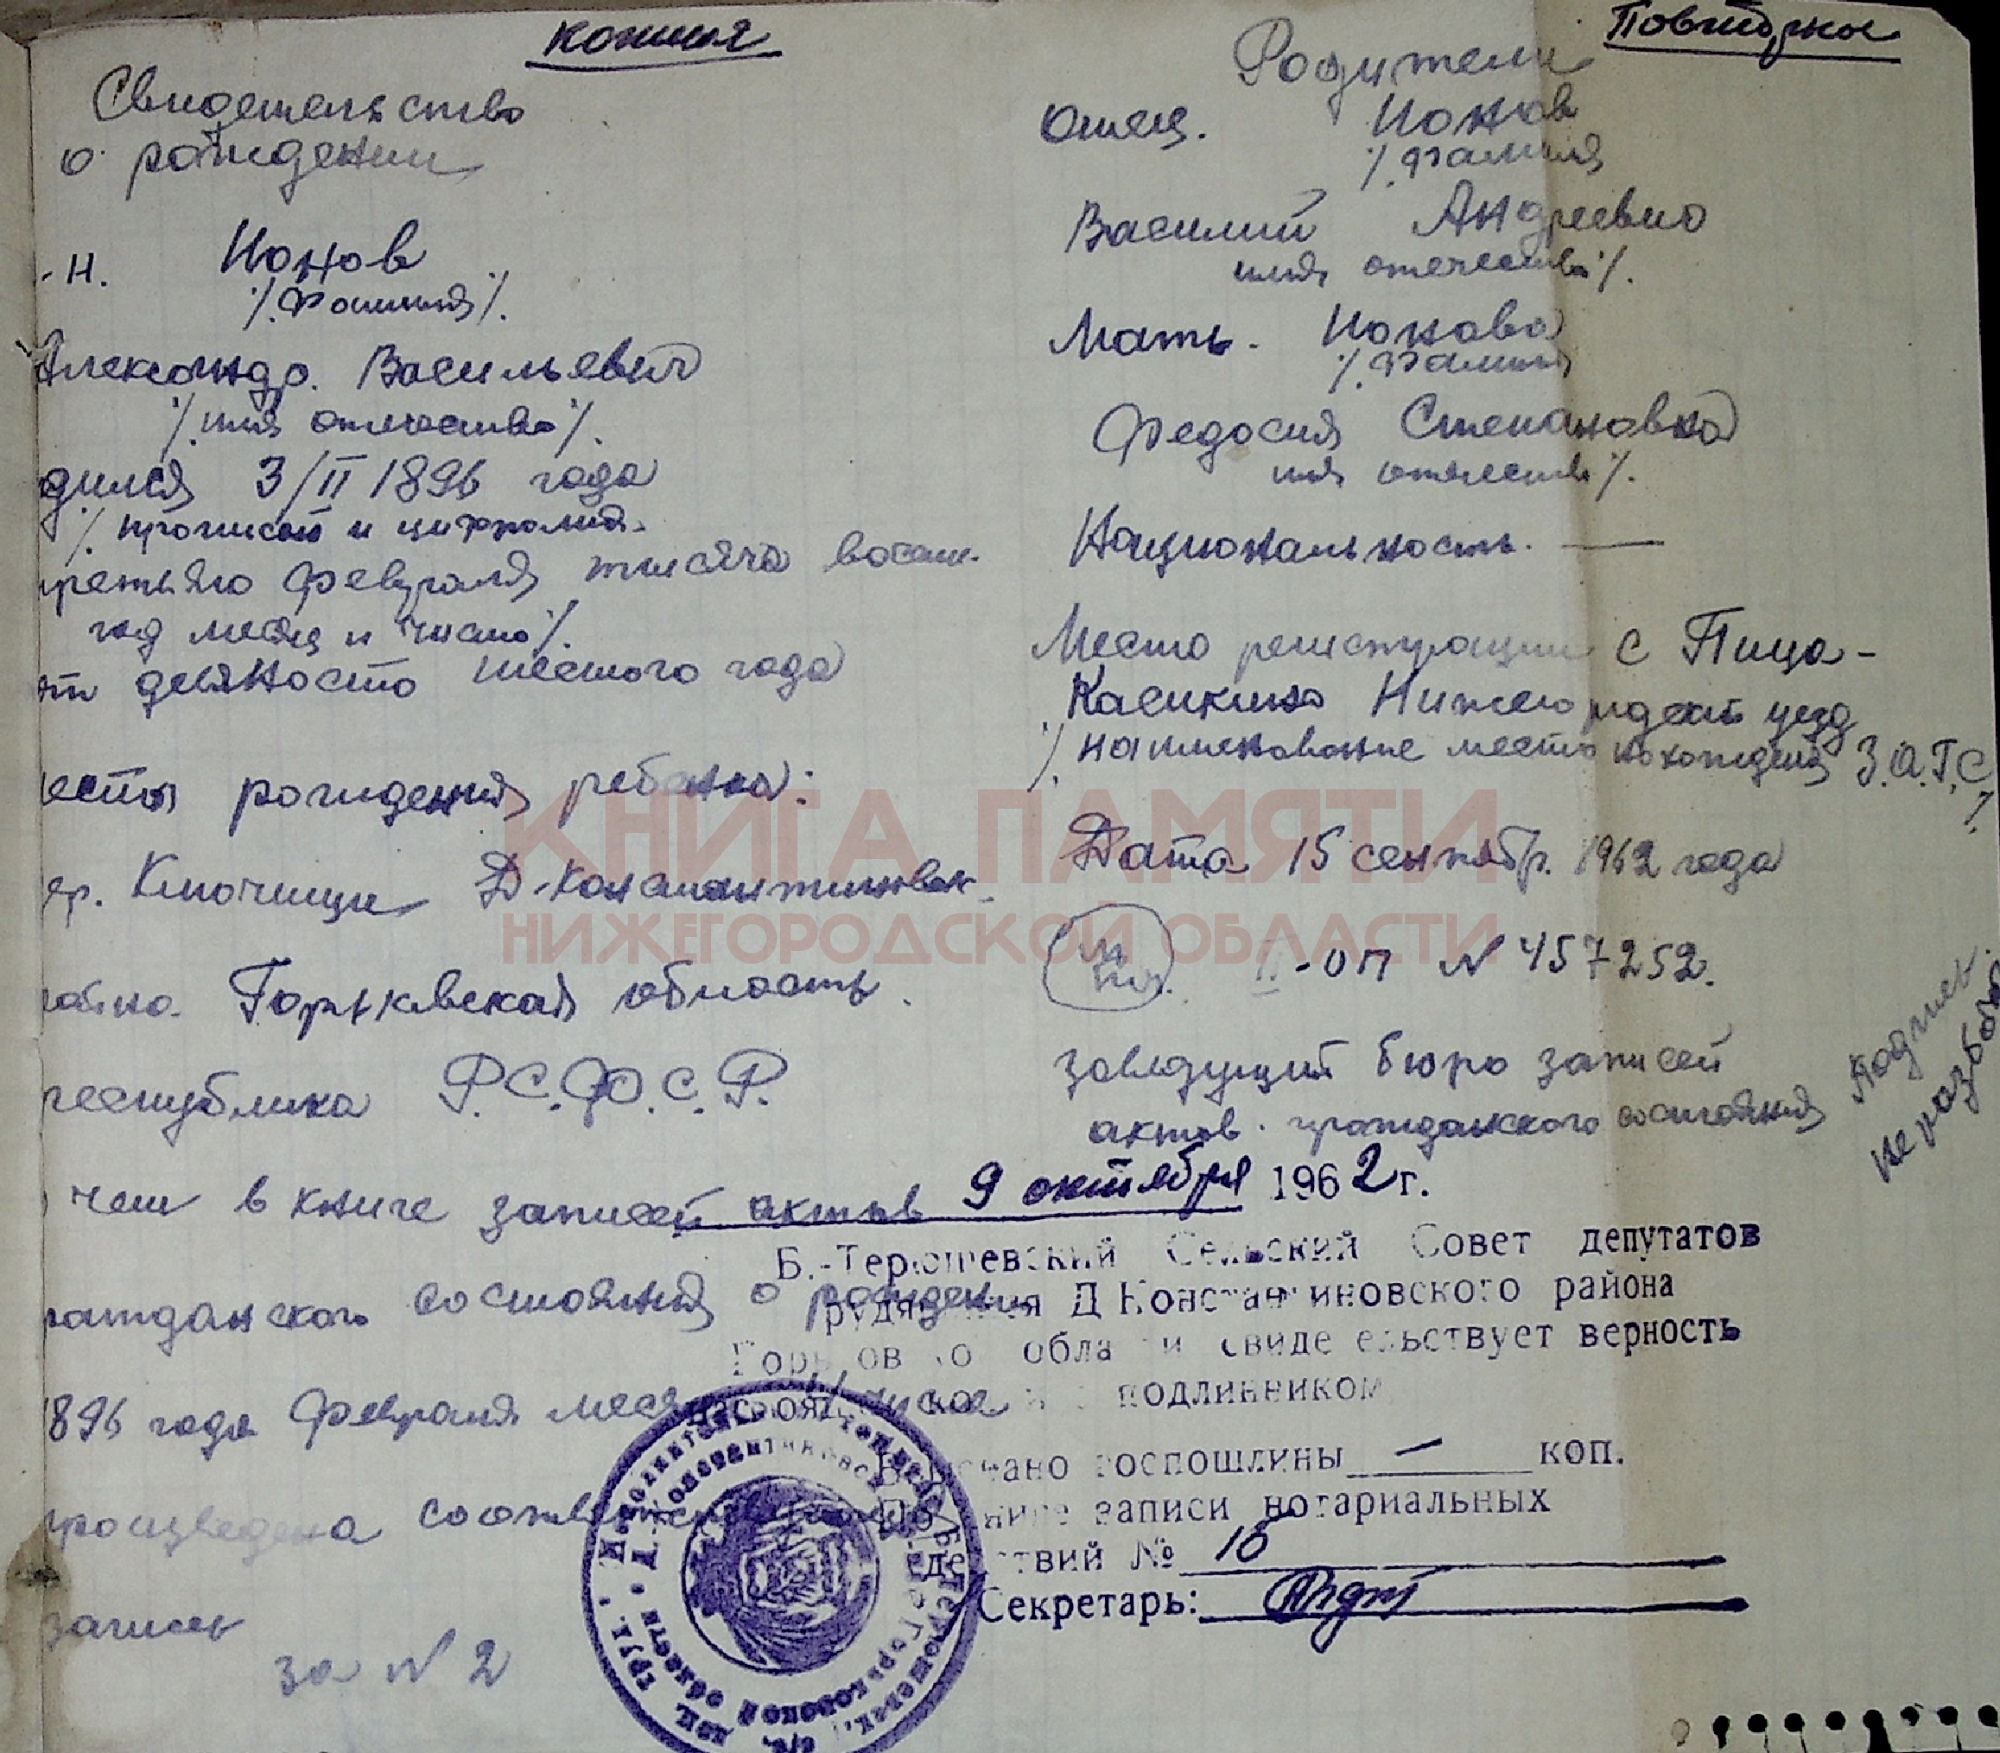 копия
Свидетельство
о рождении
-н. Ионов
/. фамилия /.
Александр. Васильевич
/. имя отечество /.
дился 3/II 1896 года
/. прописей и цифрами.
третьяго февраля тысяча восем.
год месяц и число /.
от девяносто шестого года
еста рождения ребенка:
ер. Ключищи Д-Константиновск.
айна. Горьковская область.
республика Р.С.Ф.С.Р.
чем в книге записей актов
ражданского состояния о рождении
896 года февраля меся числа
произведена соответ
запись
за N 2
Повторное
Родители
Отец. Ионов
/. фамилия
Василий Андреевич
имя отечество /.
Мать. Ионова
/. фамилия
Федосия Степановна
имя отечество /.
Национальность. —
Место регистрации с Пица-
Касикино Нижегородской уезд
/. наименование место нахождения З.А.Г.С. /.
Дата 15 сентябр. 1962 года
II-ОП N 457252.
заведущий бюро записей
актов. гражданского состояния
Подпись.
неразбор
9 октября 1962 г.
Б.-Терюшевский Сельский Совет депутатов
трудящихся Д Константиновского района
Горьковско обла и свиде ельствует верность
настоящ ко с подлинником
Взыскано госпошлины — коп.
По книге записи нотариальных
действий № 10
Секретарь:
КНИГА ПАМЯТИ
НИЖЕГОРОДСКОЙ ОБЛАСТИ